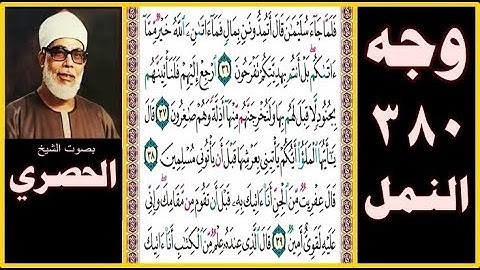 وجه
٣٨٠
النمل
فَلَمَّا جَآءَ سُلَيْمَٰنَ قَالَ أَتُمِدُّونَنِ بِمَالٍ فَمَآ ءَاتَىٰنِۦَ ٱللَّهُ خَيْرٌ مِّمَّآ
ءَاتَىٰكُم بَلْ أَنتُم بِهَدِيَّتِكُمْ تَفْرَحُونَ ٣٦ ٱرْجِعْ إِلَيْهِمْ فَلَنَأْتِيَنَّهُم
بِجُنُودٍ لَّا قِبَلَ لَهُم بِهَا وَلَنُخْرِجَنَّهُم مِّنْهَآ أَذِلَّةً وَهُمْ صَٰغِرُونَ ٣٧ قَالَ
يَٰٓأَيُّهَا ٱلْمَلَؤُا۟ أَيُّكُمْ يَأْتِينِى بِعَرْشِهَا قَبْلَ أَن يَأْتُونِى مُسْلِمِينَ ٣٨
قَالَ عِفْرِيتٌ مِّنَ ٱلْجِنِّ أَنَا۠ ءَاتِيكَ بِهِۦ قَبْلَ أَن تَقُومَ مِن مَّقَامِكَ وَإِنِّى
عَلَيْهِ لَقَوِىٌّ أَمِينٌ ٣٩ قَالَ ٱلَّذِى عِندَهُۥ عِلْمٌ مِّنَ ٱلْكِتَٰبِ أَنَا۠ ءَاتِيكَ
بصوت الشيخ
الحصري